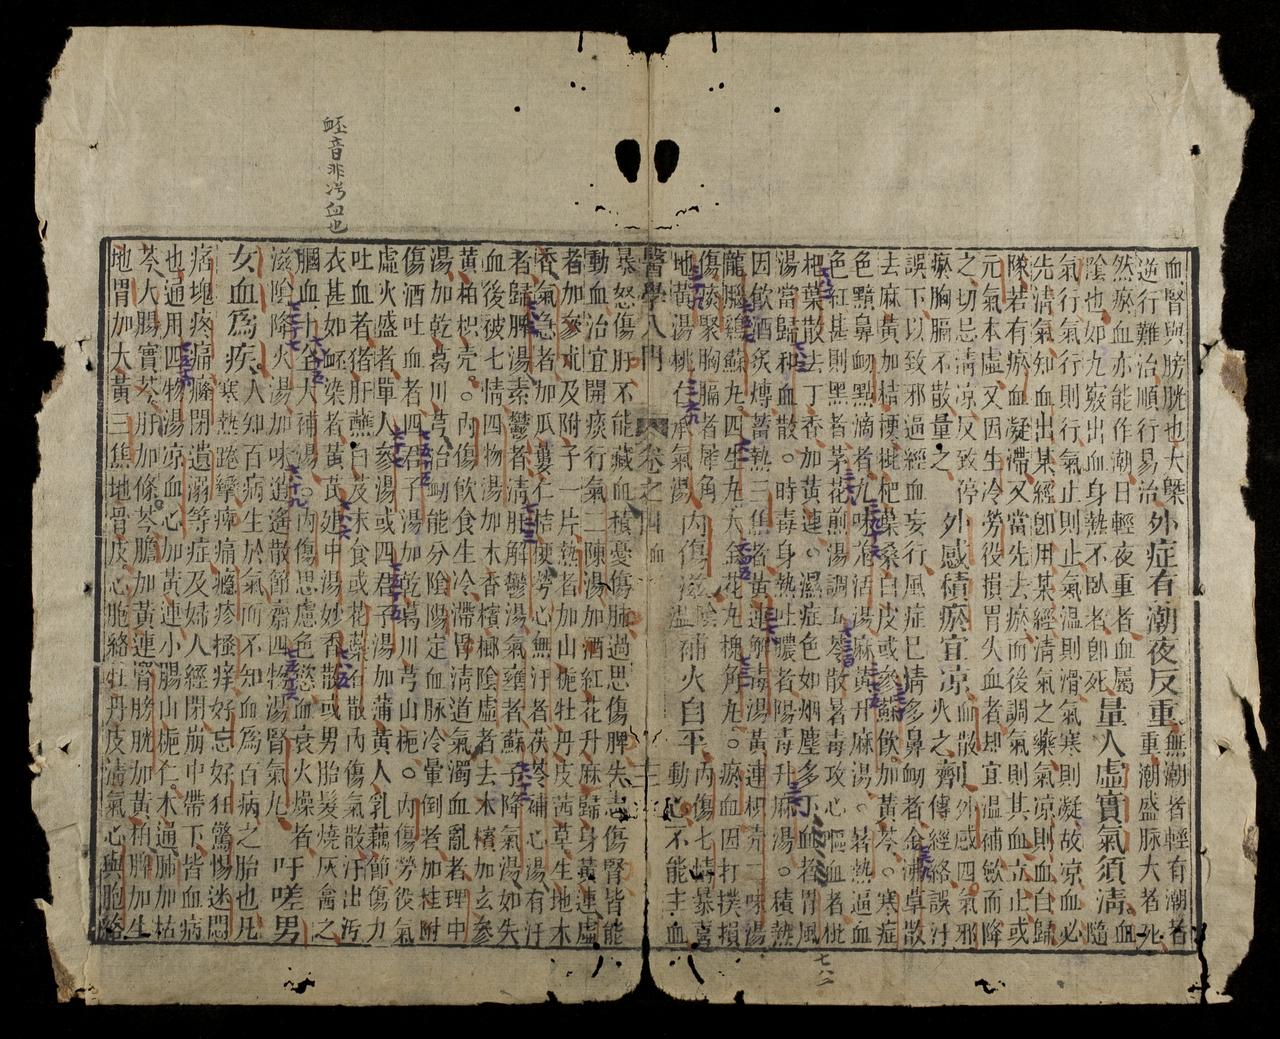 血腎與膀胱也大槩外症有潮夜反重無潮者輕有潮者
逆行難治順行易治重潮盛脉大者死
然瘀血亦能作潮日輕夜重者血屬量人虛實氣須清血
陰也如九竅出血身熱不臥者卽死隨
氣行氣行則行氣止則止氣溫則滑氣寒則凝故凉血必
先清氣知血出某經卽用某經清氣之藥氣凉則血自歸
隊若有瘀血凝滯又當先去瘀而後調氣則其血立止或
元氣本虛又因生冷勞役損胃失血者却宜溫補斂而降
之切忌清凉反致停外感積瘀宜凉血散外感四氣邪
瘀胸膈不散量之火之劑傳經絡誤汗
誤下以致邪逼經血妄行風症已猜多鼻衂者金沸草散
去麻黃加桔梗枇杷葉桑白皮或參蘇飲加黃芩寒症
色黯鼻衂點滴者九味羌活湯麻黃升麻湯暑熱逼血
色紅甚則黑者茅花煎湯調五苓散暑毒攻心嘔血者枇
杷葉散去丁香加黃連濕症色如烟塵多血者胃風
湯當歸和血散時毒身熱吐膿者陽毒升麻湯積熱
因飲酒炙煿蓄熱三焦者黃連解毒湯黃連枳壳二味湯
龍腦鷄蘇丸四生丸大金花丸槐角丸瘀血因打撲損
傷痰聚胸膈者犀角內傷滋陰內傷七情暴喜
地黃湯桃仁承氣湯溫補火自平動心不能主血
醫學入門 卷之四 血
暴怒傷肝不能藏血積憂傷肺過思傷脾失志傷腎皆能
動血治宜開痰行氣二陳湯加酒紅花升麻歸身黃連虛
者加參朮及附子一片熱者加山梔牡丹皮茜草生地木
香氣急者加瓜蔞仁桔梗苓心無汗者茯苓補心湯有汗
者歸脾湯素鬱者清肝解鬱湯氣壅者蘇子降氣湯如失
血後被七情四物湯加木香檳榔陰虛者去木檳加玄參
黃柏枳壳內傷飲食生冷滯胃清道氣濁血亂者理中
湯加乾葛川芎治衂能分陰陽定血脉冷暈倒者加桂附
傷酒吐血者四君子湯加乾葛川芎山梔內傷勞役氣
虛火盛者單人參湯或四君子湯加蒲黃人乳藕節傷力
吐血者猪肝蘸白芨末食或花蘂石散內傷氣散汗出汚
衣甚如衃染者黃芪建中湯妙香散或男胎髮燒灰禽之
膕血十全大補湯內傷思慮色慾血衰火燥者
滋陰降火湯加味逍遙散節齋四物湯腎氣丸吁嗟男
女血爲疾人知百病生於氣而不知血爲百病之胎也凡
痞塊疼痛寒熱跪攣痺痛癮疹搔痒好忘好狂驚惕迷悶
癃閉遺溺等症及婦人經閉崩中帶下皆血病
也通用四物湯凉血心加黃連小腸山梔仁木通肺加枯
芩大腸實芩肝加條芩膽加黃連腎膀胱加黃柏脾加生
地胃加大黃三焦地骨皮心胞絡牡丹皮清氣心與胞絡
衃音非汚血也